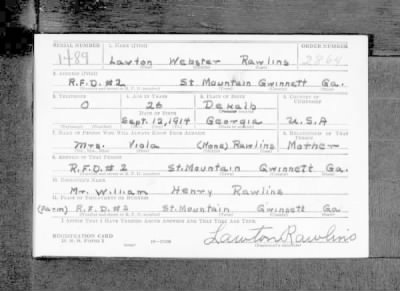 SERIAL NUMBER 1. NAME (Print) ORDER NUMBER
1489 Lawton Webster Rawlins 2864
2. ADDRESS (Print)
R.F.D. #2 St. Mountain Gwinnett Ga.
3. TELEPHONE 4. AGE IN YEARS 5. PLACE OF BIRTH 6. COUNTRY OF CITIZENSHIP
O 26 Dekalb
DATE OF BIRTH
Sept. 12, 1914 Georgia U.S.A
7. NAME OF PERSON WHO WILL ALWAYS KNOW YOUR ADDRESS 8. RELATIONSHIP OF THAT PERSON
Mrs. Viola (Mona) Rawlins Mother
9. ADDRESS OF THAT PERSON
R.F.D. # 2 St. Mountain Gwinnett Ga.
10. EMPLOYER'S NAME
Mr. William Henry Rawlins
11. PLACE OF EMPLOYMENT OR BUSINESS
(Farm) R.F.D. #2 St. Mountain Gwinnett Ga
I AFFIRM THAT I HAVE VERIFIED ABOVE ANSWERS AND THAT THEY ARE TRUE.
REGISTRATION CARD
D. S. S. FORM 1
Lawton Rawlins